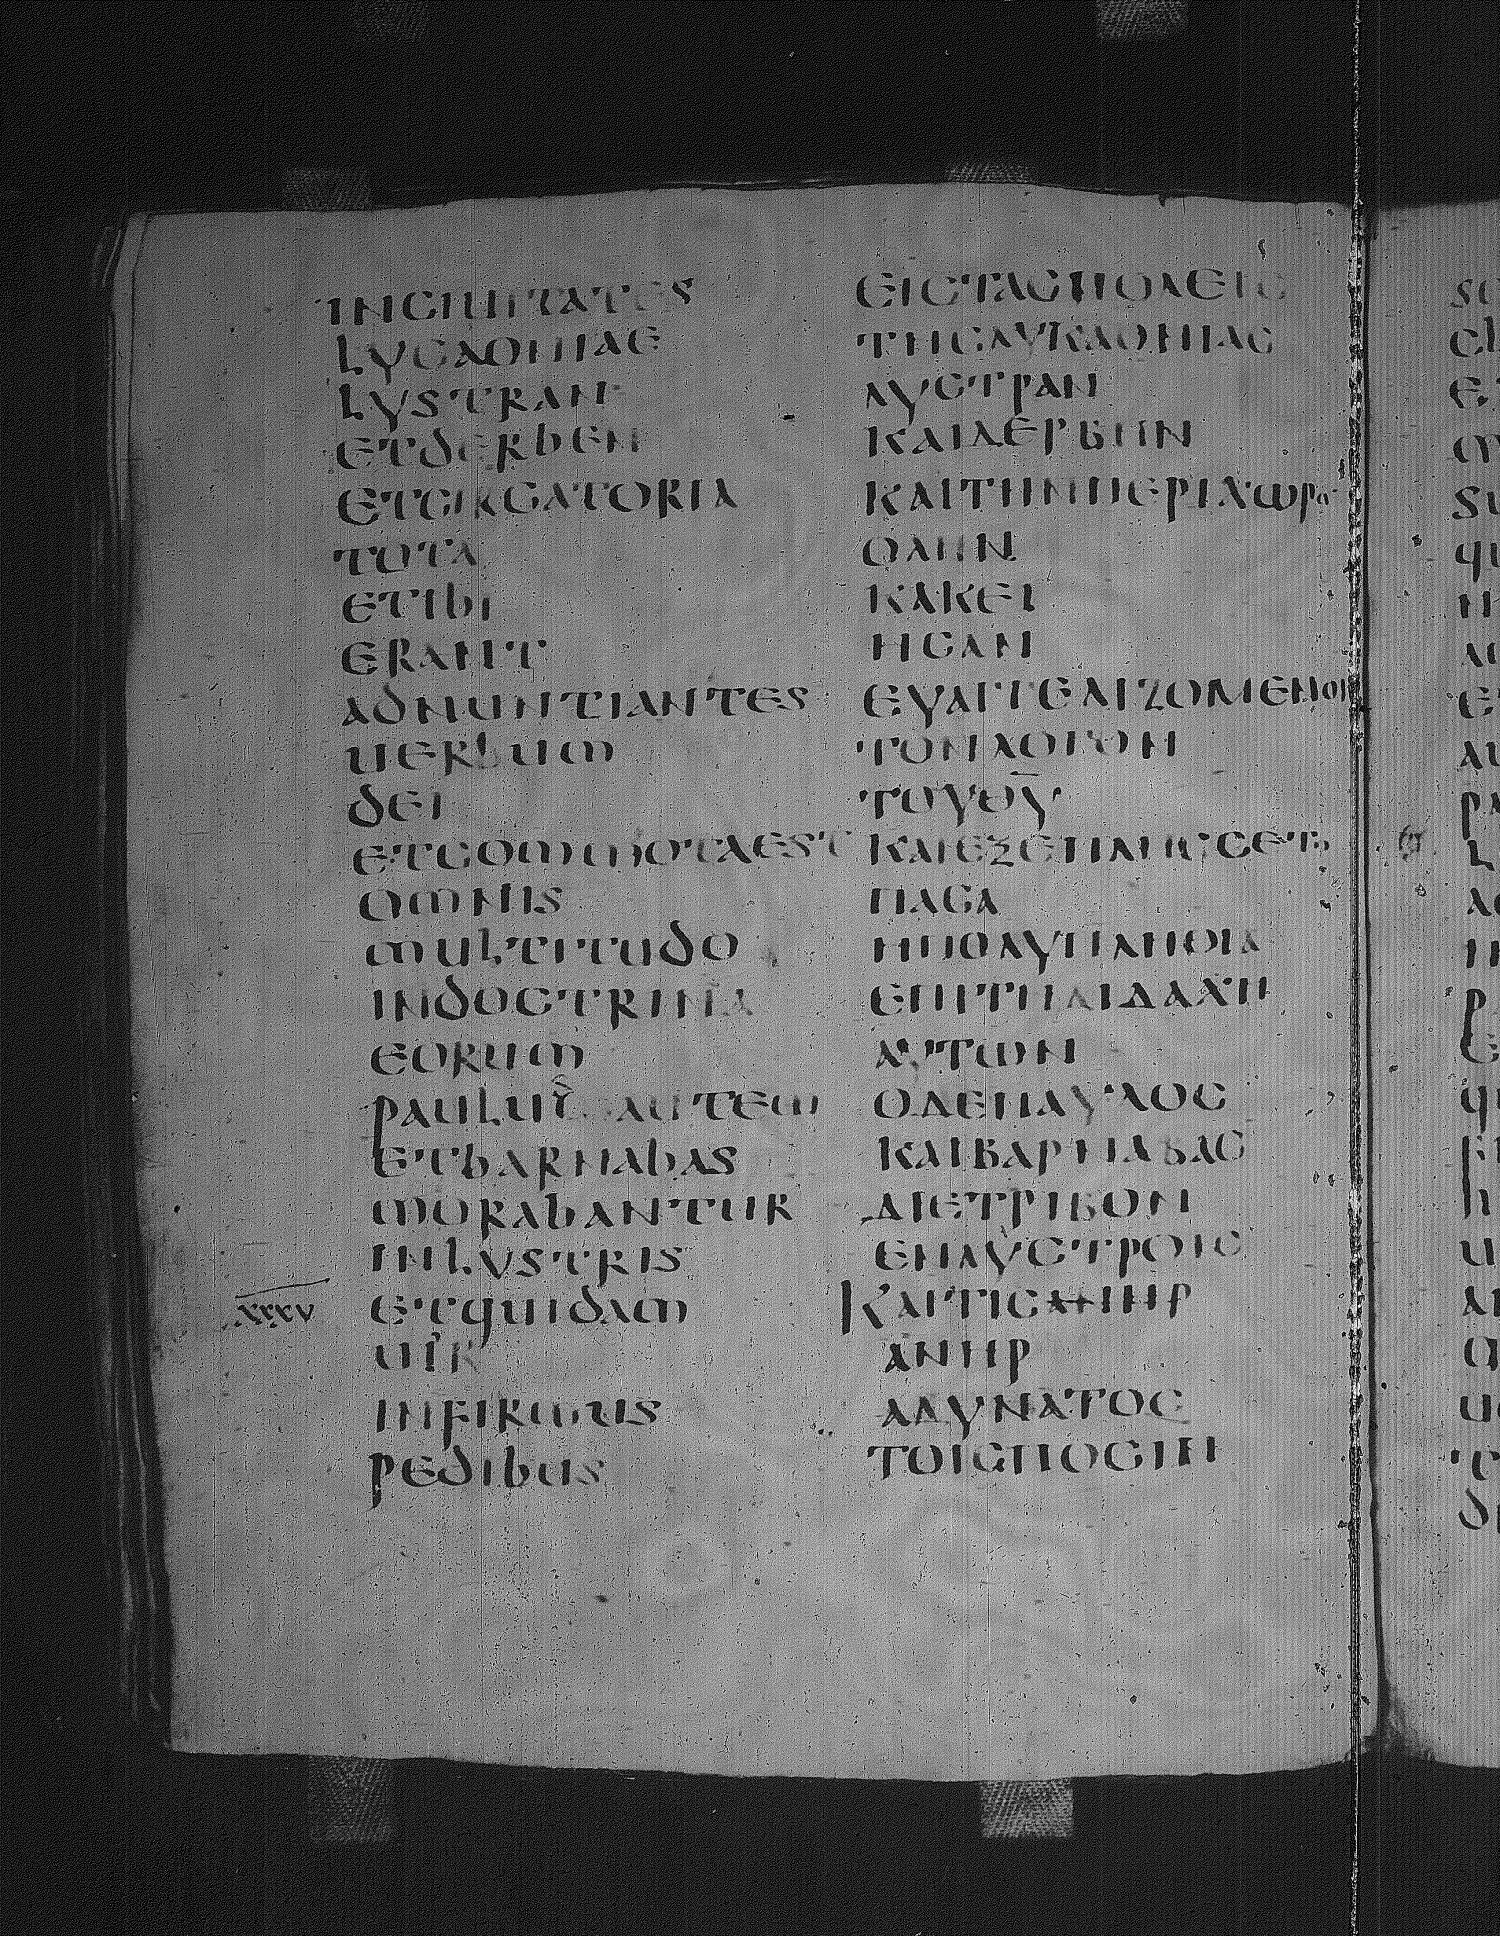 INCIUITATES
LYCAONIAE
LYSTRAN
ETDERBEN
ETCIRCATORIA
TOTA
ETIBI
ERANT
ADNUNTIANTES
UERBUM
DEI
ETCOMMOTAEST
OMNIS
MULTITUDO
INDOCTRINA
EORUM
PAULUS AUTEM
ETBARNABAS
MORABANTUR
INLYSTRIS
xxxv
ETQUIDAM
UIR
INFIRMUS
PEDIBUS
ΕΙϹΤΑϹΠΟΛΕΙϹ
ΤΗϹΛΥΚΑΟΝΙΑϹ
ΛΥϹΤΡΑΝ
ΚΑΙΔΕΡΒΗΝ
ΚΑΙΤΗΝΠΕΡΙΧΩΡο
ΟΛΗΝ
ΚΑΚΕΙ
ΗϹΑΝ
ΕΥΑΓΓΕΛΙΖΟΜΕΝΟΙ
ΤΟΝΛΟΓΟΝ
ΤΟΥΘ̅Υ̅
ΚΑΙΕΞΕΠΛΗϹϹΕΤο
ΠΑϹΑ
ΗΠΟΛΥΠΛΗΘΙΑ
ΕΠΙΤΗΔΙΔΑΧΗ
ΑΥΤΩΝ
ΟΔΕΠΑΥΛΟϹ
ΚΑΙΒΑΡΝΑΒΑϹ
ΔΙΕΤΡΙΒΟΝ
ΕΝΛΥϹΤΡΟΙϹ
ΚΑΙΤΙϹΑΝΗΡ
ΑΝΗΡ
ΑΔΥΝΑΤΟϹ
ΤΟΙϹΠΟϹΙΝ